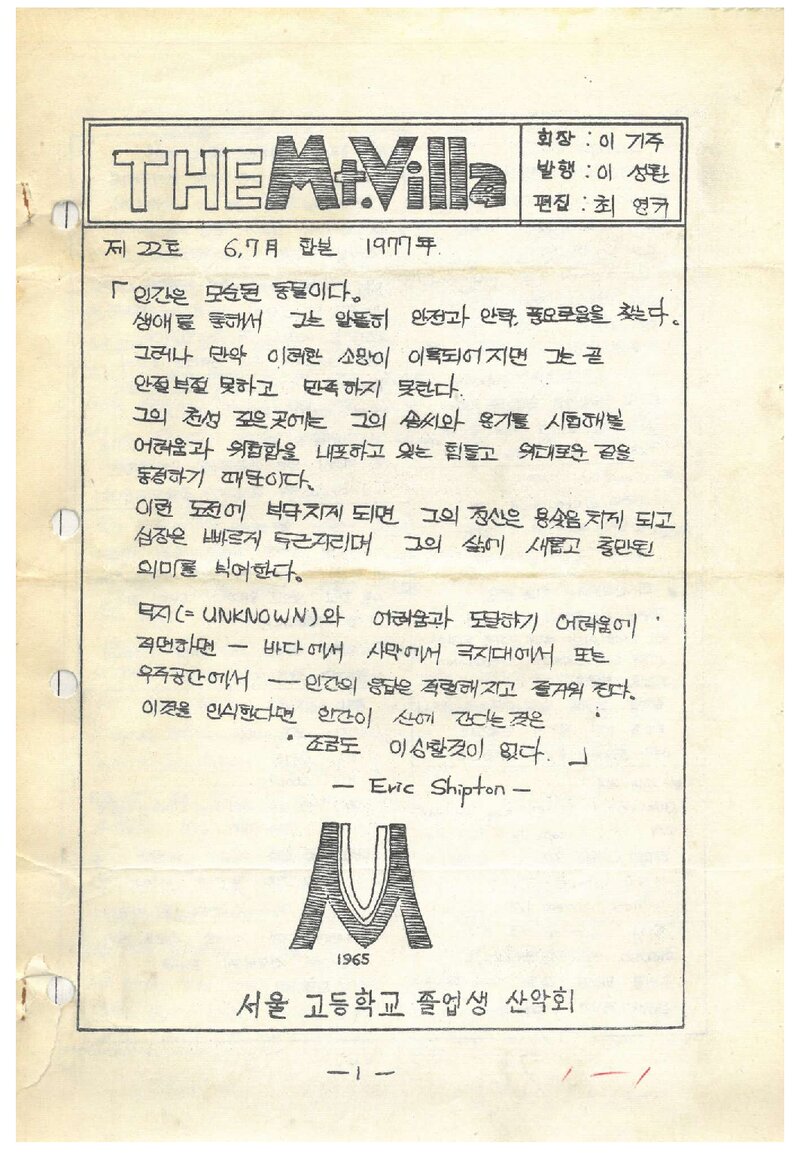 THE Mt.Villa
회장 : 이 기주
발행 : 이 성환
편집 : 최 연규
제 22호 6,7月 합본 1977年.
「인간은 모순된 동물이다。
생애를 통해서 그는 알뜰히 안전과 안락, 풍요로움을 찾는다.
그러나 만약 이러한 소망이 이룩되어지면 그는 곧
안절부절 못하고 만족하지 못한다.
그의 천성 깊은곳에는 그의 솜씨와 용기를 시험해볼
어려움과 위험함을 내포하고 있는 힘들고 위태로운 길을
동경하기 때문이다、
이런 도전에 부닥치게 되면 그의 정신은 용솟음치게 되고
심장은 빠르게 두근거리며 그의 삶에 새롭고 충만된
의미를 부여한다。
무지(=UNKNOWN)와 어려움과 도달하기 어려움에
직면하면 — 바다에서 사막에서 극지대에서 또는
우주공간에서 — 인간의 응답은 적렬해지고 즐거워 진다.
이것을 인식한다면 인간이 산에 간다는것은
조금도 이상할것이 없다. 」
— Eric Shipton —
M
1965
서울 고등학교 졸업생 산악회
— 1 —
1 — 1